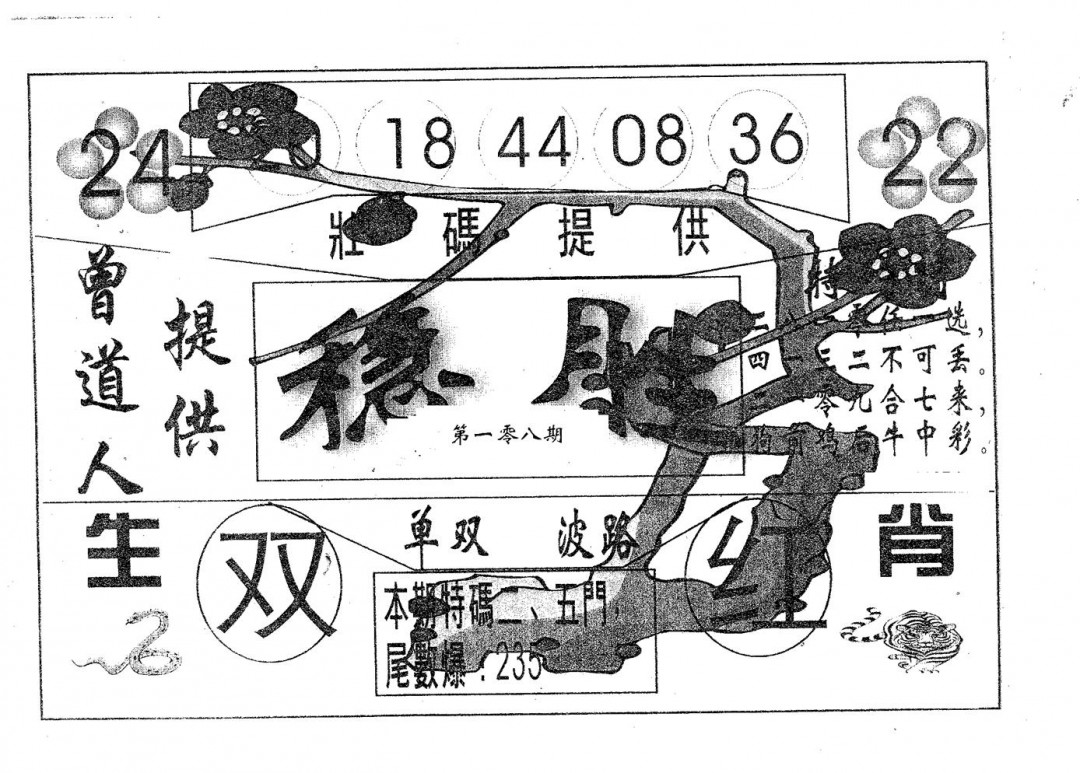 24
18 44 08 36
22
壯碼提供
曾道人
提供
稳胜
第一零八期
特
选，
四一三二不可丢。
零九合七来，
狗 鸡 牛中彩。
生
双
单双 波路
红
肖
本期特碼二、五門，
尾數爆：235